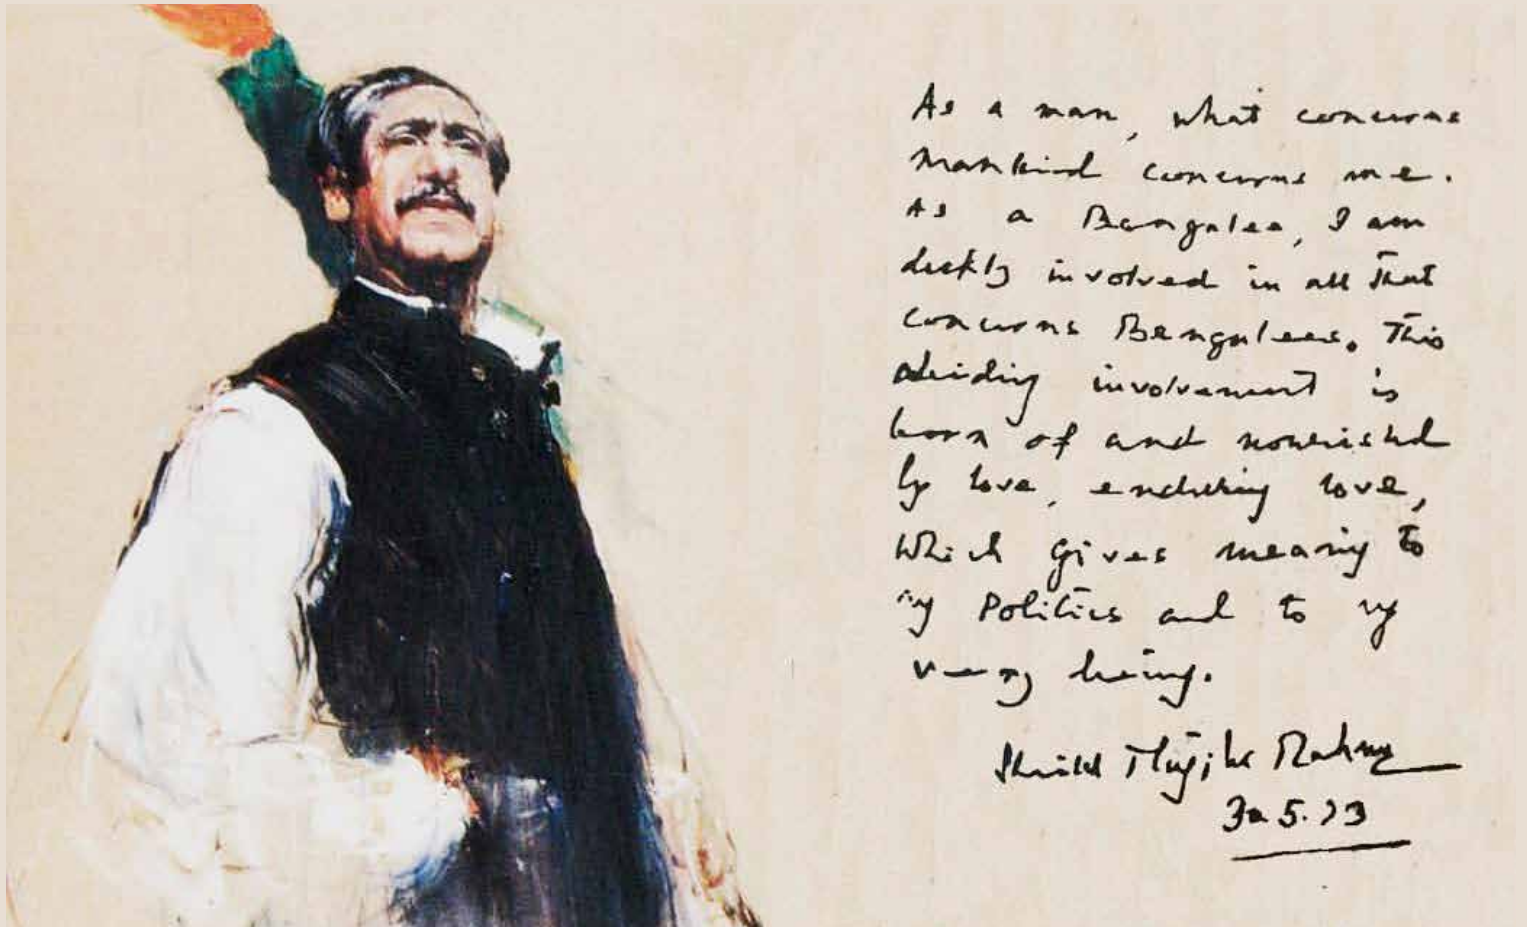 As a man, what concerns
mankind concerns me.
As a Bengalee, I am
deeply involved in all that
concerns Bengalees. This
abiding involvement is
born of and nourished
by love, enduring love,
which gives meaning to
my politics and to my
very being.
Sheikh Mujibur Rahman
30.5.73